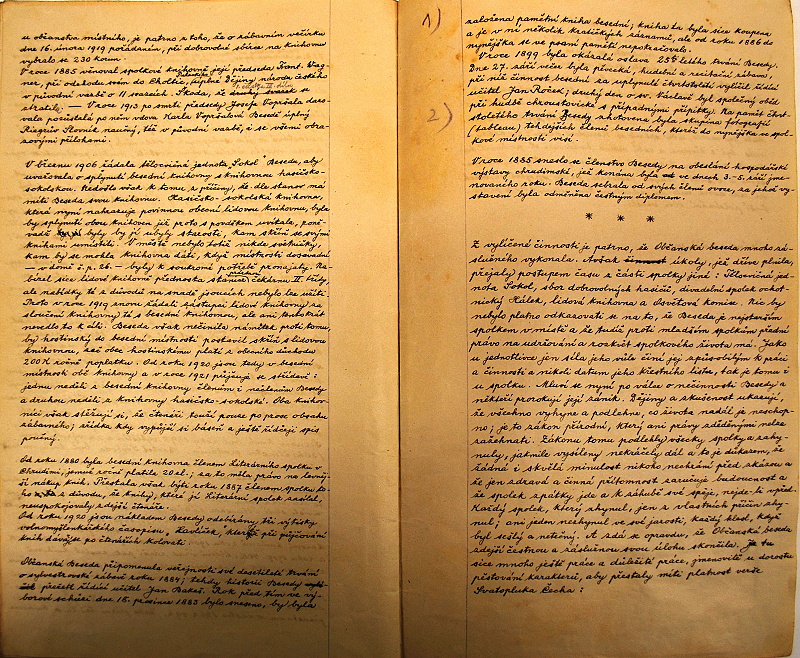 u občanstva místního, je patrno z toho, že o zábavném večírku
dne 16. února 1919 pořádaném, při dobrovolné sbírce na knihovnu
vybralo se 230 korun.
V roce 1885 věnoval spolkové knihovně její předseda Frant. Wag-
ner, při odchodu svém do Choltic, úplné Dějiny národa českého
v původní vazbě o 11 svazcích. Škoda, že se
ztratily. — V roce 1913 po smrti předsedy Josefa Vopršala daro-
vala pozůstalá po něm vdova Karla Vopršalová Besedě úplný
Riegrův Slovník naučný, též v původní vazbě, i se všemi obra-
zovými přílohami.
V březnu 1906 žádala tělocvičná jednota "Sokol" Besedu, aby
uvažovala o splynutí besední knihovny s knihovnou hasičsko-
sokolskou. Nedošlo však k tomu z příčiny, že dle stanov má
míti Beseda svou knihovnu. Hasičsko-sokolská knihovna,
která nyní nahrazuje povinnou obecní lidovou knihovnu, byla
by splynutí obou knihoven již proto s povděkem uvítala, poně-
vadž by jí ubyly starosti, kam skříň se svými
knihami umístiti. V městě nebylo totiž nikde světničky,
kam by se mohla knihovna dáti, když místnosti dosavadní
— v domě č.p. 26. — byly k soukromé potřebě pronajaty. Na-
bízel sice lidové knihovně přednosta stanice Čekárnu II. třídy,
ale nabídky té z důvodů na snadě jsoucích nebylo lze užíti.
Proto v roce 1919 znovu žádali zástupci lidové knihovny za
sloučení knihovny té s besední knihovnou, ale ani tentokrát
nevedlo to k cíli. Beseda však nečinila námitek proti tomu,
by hostinský do besední místnosti postavil skříň s lidovou
knihovnou, zač obec hostinskému platí z obecního důchodu
200 K ročně poplatku. Od roku 1920 jsou tedy v besední
místnosti obě knihovny a v roce 1921 půjčují se střídavě:
jednu neděli z besední knihovny členům i nečlenům Besedy
a druhou neděli z knihovny hasičsko-sokolské. Oba knihov-
níci však stěžují si, že čtenáři touží pouze po prose obsahu
zábavného; zřídka kdy vypůjčí si báseň a ještě řidčeji spis
poučný.
Od roku 1880 byla besední knihovna členem Literárního spolku v
Chrudimi, jemuž roční platila 20 zl.; za to měla právo na levněj-
ší nákup knih. Přestala však býti roku 1887 členem spolku to-
ho z důvodu, že knihy, které jí Literární spolek zasílal,
neuspokojovaly zdejší čtenáře.
Od roku 1920 jsou nákladem Besedy odebírány tři výtisky
volnomyšlenkářského časopisu "Havlíček", které při půjčování
knih dávají se po čtenářích kolovati.
Občanská Beseda připomněla veřejnosti své desetileté trvání
o sylvestrovské zábavě roku 1884; tehdy historii Besedy
přečetl řídící učitel Jan Bakeš. Rok před tím ve vý-
borové schůzi dne 15. prosince 1883 bylo sneseno, by byla
1)
založena pamětní kniha besední; kniha ta byla sice koupena
a je v ní několik kratičkých záznamů, ale od roku 1886 do
nynějška se ve psaní pamětí nepokračovalo.
V roce 1899 byla okázalá oslava 25ti letého trvání Besedy.
Dne 27. září večer byla pěvecká, hudební a recitační zábava,
při níž činnost besední za uplynulé čtvrtstoletí vylíčil řídící
učitel Jan Roček; druhý den o sv. Václavě byl společný oběd
při hudbě chroustovické s případnými přípitky. Na paměť čtvrt-
2)
stoletého trvání Besedy zhotovena byla skupina fotografií
(tableau) tehdejších členů besedních, kteráž do nynějška ve spol-
kové místnosti visí.
V roce 1885 sneslo se členstvo Besedy na obeslání hospodářské
výstavy chrudimské, jež konána byla ve dnech 3.-5. září jme-
novaného roku. Beseda sebrala od svých členů ovoce, za jehož vý-
stavení byla odměněna čestným diplomem.
* * *
Z vylíčené činnosti je patrno, že Občanská beseda mnoho zá-
služného vykonala. Avšak činnost úkoly, jež dříve plnila,
přejaly postupem času z části spolky jiné: Tělocvičná jed-
nota Sokol, sbor dobrovolných hasičů, divadelní spolek ochot-
nický Hálek, lidová knihovna a Osvětová komise. Nic by
nebylo platno odkazovati se na to, že Beseda je nejstarším
spolkem v městě a že tudíž proti mladším spolkům přední
právo na udržování a rozkvět spolkového života má. Jako
u jednotlivce jen síla jeho vůle činí jej způsobilým k práci
a činnosti a nikoli datum jeho křestního listu, tak je tomu i
u spolku. Mluví se nyní po válce o nečinnosti Besedy a
někteří prorokují její zánik. Dějiny a zkušenost ukazují,
že všechno vyhyne a podlehne, co života nadál je neschop-
no; je to zákon přírodní, který ani právy zděděnými nelze
zažehnati. Zákonu tomu podlehly všecky spolky a zahy-
nuly, jakmile vysíleny nekráčely dál a to je důkazem, že
žádná i skvělá minulost nikoho nechrání před zkázou a
že jen zdravá a činná přítomnost zaručuje budoucnost a
že spolek zpátky jde a k záhubě své spěje, nejde-li vpřed.
Každý spolek, který zhynul, jen z vlastních příčin zhy-
nul; ani jeden nezhynul ve své jarosti, každý klesl, když
byl sešlý a netečný. A zdá se opravdu, že Občanská beseda
zdejší čestnou a záslužnou svou úlohu skončila. Je tu
sice mnoho ještě práce a důležité práce, jmenovitě u dorostu
pěstování karakterů, aby přestaly míti platnost verše
Svatopluka Čecha: